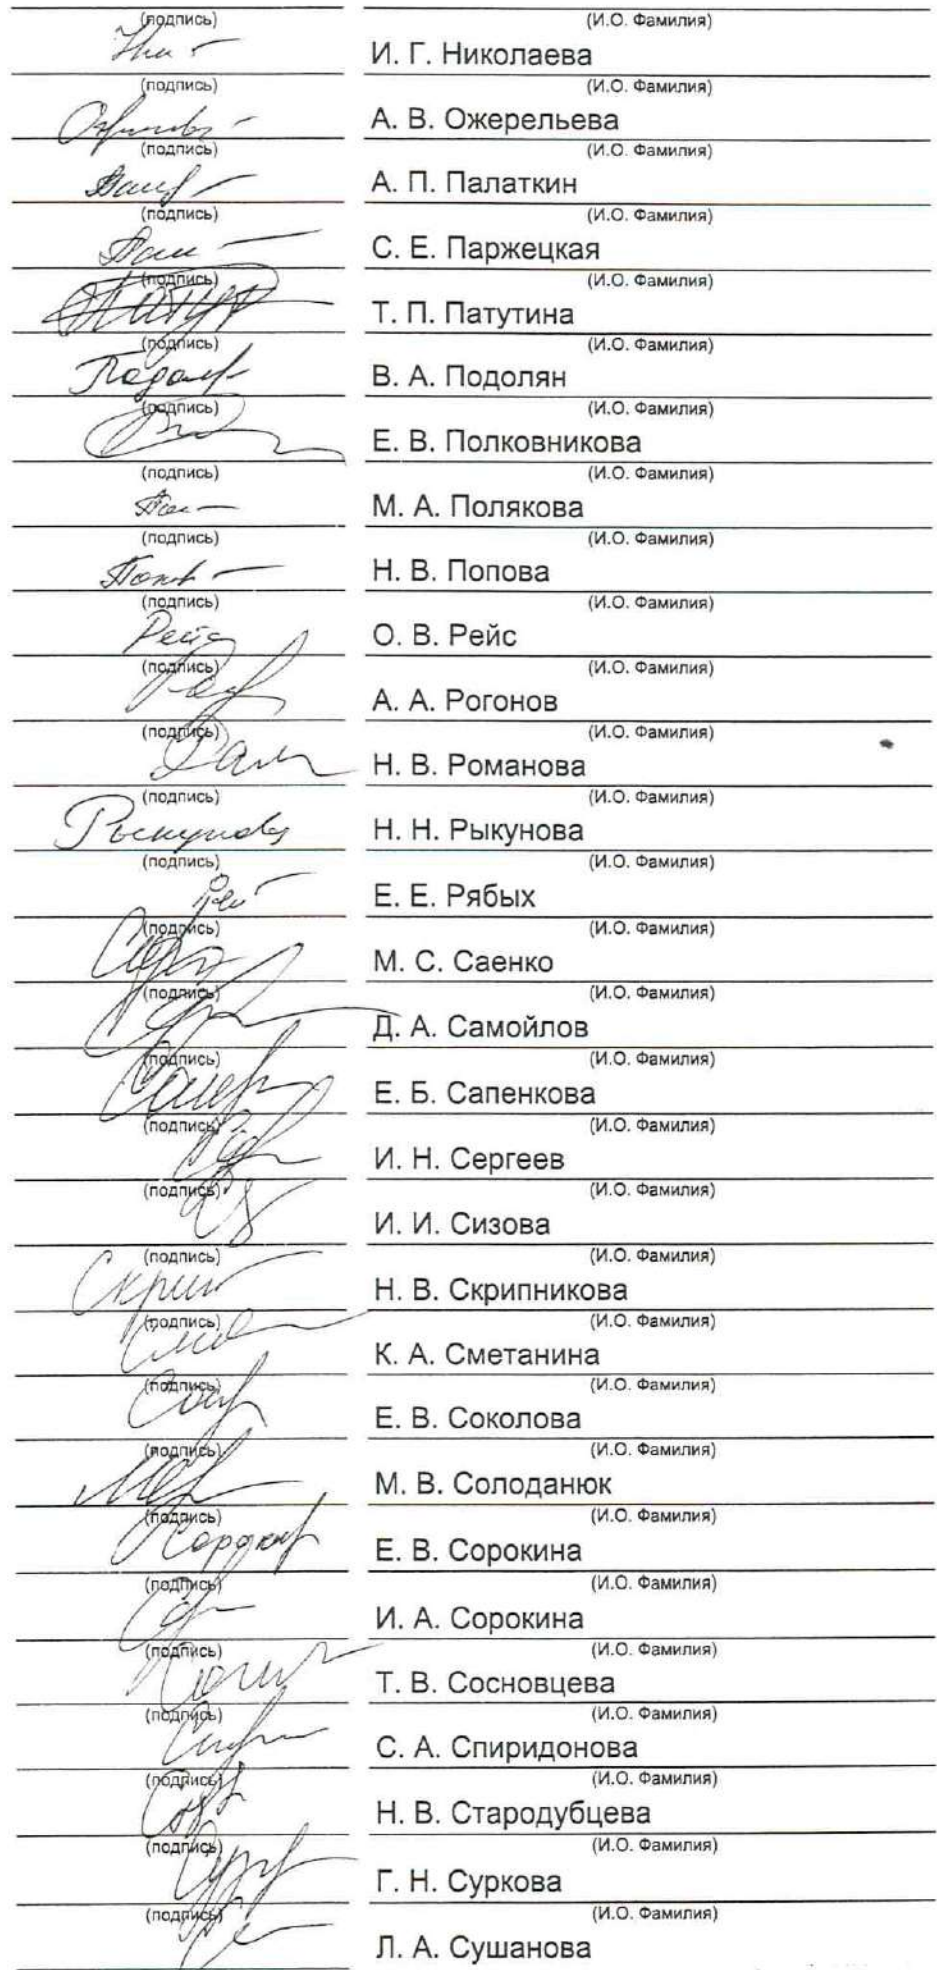 (подпись) (И.О. Фамилия)
И. Г. Николаева
(подпись) (И.О. Фамилия)
А. В. Ожерельева
(подпись) (И.О. Фамилия)
А. П. Палаткин
(подпись) (И.О. Фамилия)
С. Е. Паржецкая
(подпись) (И.О. Фамилия)
Т. П. Патутина
(подпись) (И.О. Фамилия)
В. А. Подолян
(подпись) (И.О. Фамилия)
Е. В. Полковникова
(подпись) (И.О. Фамилия)
М. А. Полякова
(подпись) (И.О. Фамилия)
Н. В. Попова
(подпись) (И.О. Фамилия)
Рейс О. В. Рейс
(подпись) (И.О. Фамилия)
А. А. Рогонов
(подпись) (И.О. Фамилия)
Н. В. Романова
(подпись) (И.О. Фамилия)
Н. Н. Рыкунова
(подпись) (И.О. Фамилия)
Е. Е. Рябых
(подпись) (И.О. Фамилия)
М. С. Саенко
(подпись) (И.О. Фамилия)
Д. А. Самойлов
(подпись) (И.О. Фамилия)
Е. Б. Сапенкова
(подпись) (И.О. Фамилия)
И. Н. Сергеев
(подпись) (И.О. Фамилия)
И. И. Сизова
(подпись) (И.О. Фамилия)
Н. В. Скрипникова
(подпись) (И.О. Фамилия)
К. А. Сметанина
(подпись) (И.О. Фамилия)
Е. В. Соколова
(подпись) (И.О. Фамилия)
М. В. Солоданюк
(подпись) (И.О. Фамилия)
Е. В. Сорокина
(подпись) (И.О. Фамилия)
И. А. Сорокина
(подпись) (И.О. Фамилия)
Т. В. Сосновцева
(подпись) (И.О. Фамилия)
С. А. Спиридонова
(подпись) (И.О. Фамилия)
Н. В. Стародубцева
(подпись) (И.О. Фамилия)
Г. Н. Суркова
(подпись) (И.О. Фамилия)
Л. А. Сушанова